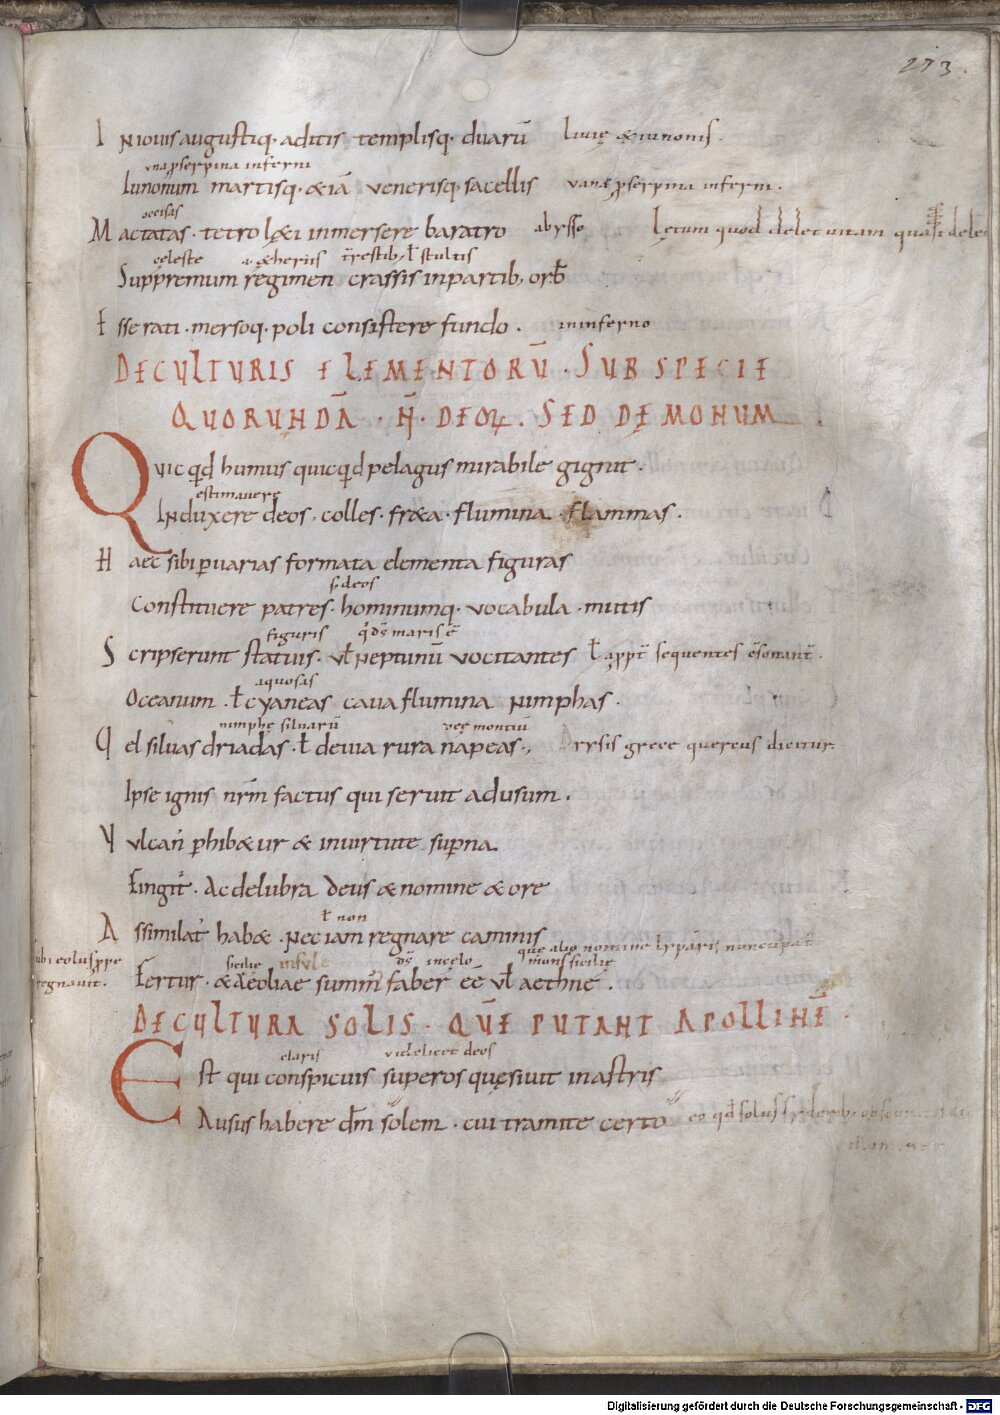 273.
I Niouis auguſtiq; aditis templisq; duarū liuię & iunonis.
una proserpina inferni
Iunonum martisq; & iā venerisq; sacellis
occisas
M actatas · tetro lęti inmersere baratro abysso Lętum quod delet uitam quasi dele
celeste i. ætheriis terrestrib; ł stultis
Suppremum regimen crassis in partib; orb̄
E sse rati · mersoq; poli consistere fundo . in inferno
DE CULTURIS ELEMENTORŪ · SUB SPECIE
QUORUNDĀ · N̄ · DEOꝜ . SED DĘMONUM
Quicqđ humus quicqđ pelagus mirabile gignit .
estimauere
Induxere deos, colles, freta, flumina, flammas .
H aec sibi ꝑ uarias formata elementa figuras
s. deos
Constituere patres · hominumq; vocabula · mutis
figuris ꝗ ds̄ maris ē
S cripserunt statuis · vł Neptunū vocitantes
aquosas
Oceanum · ł cyaneas caua flumina Nimphas .
nimphę siluarū deę montiū
Vel siluas driadas · ł deuia rura napeas · Drysis grece quercus dicitur
Ipse ignis nr̄m factus qui seruit ad usum .
V ulcan̄ ꝑhibetur & in uirtute suꝑna .
Fingit̄ · Ac delubra deus & nomine & ore
ł non
A ssimilat̄ habet · Nec iam regnare caminis
que alio nomine lypparis nuncupat̄
ubi eolus pre
regnauit .
sicilie insulę ds̄ in celo mons sicilię
Fertur · & aeoliae summ̄ faber eē vł aethnę .
DE CULTURA SOLIS · QUĒ PUTANT APOLLINĒ ·
claris videlicet deos
Est qui conspicuis superos quęsiuit in astris
Ausus habere dm̄ solem · cui tramite certo